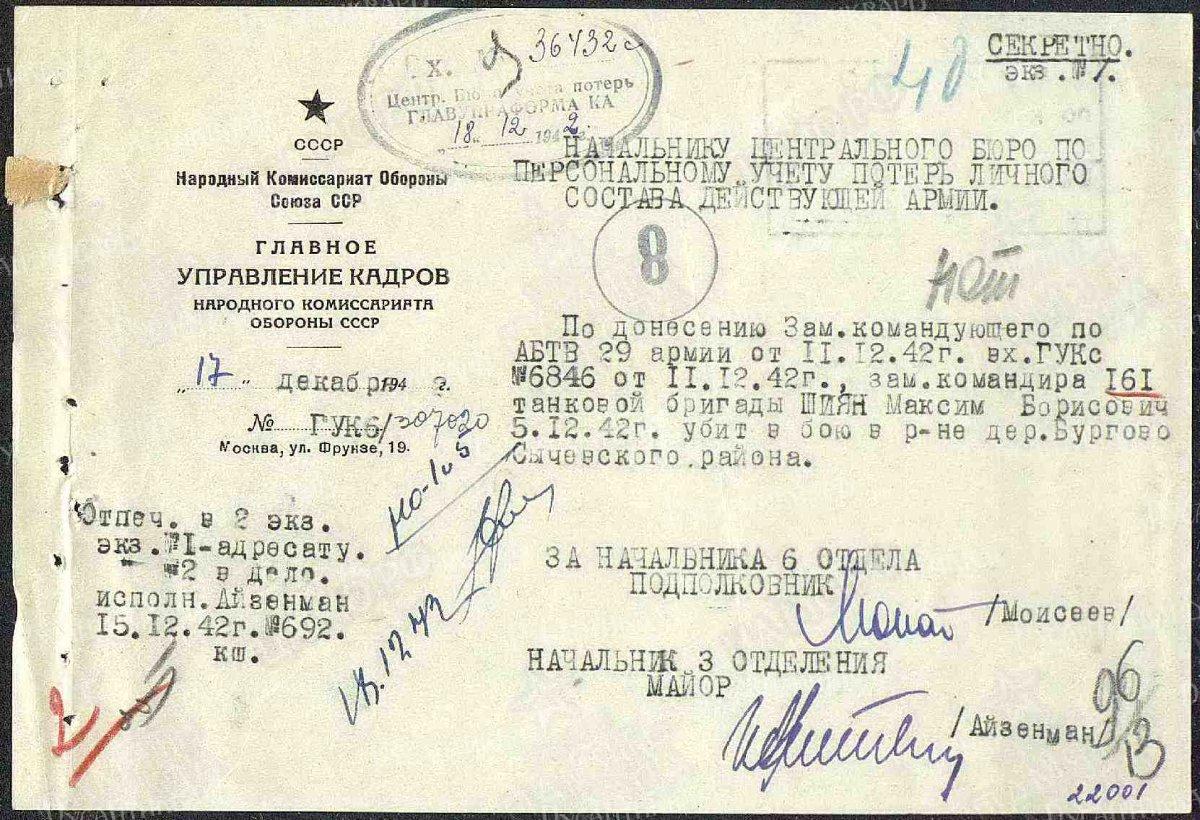 36432
Вх. №
Центр. Бюро учета потерь
ГЛАВУПРАФОРМА КА
"18" 12 1942 г.
СЕКРЕТНО.
экз.№1.
СССР
Народный Комиссариат Обороны
Союза ССР
ГЛАВНОЕ
УПРАВЛЕНИЕ КАДРОВ
НАРОДНОГО КОМИССАРИАТА
ОБОРОНЫ СССР
"17" декабря 194 2 г.
№ ГУК6/307020
Москва, ул. Фрунзе, 19.
НАЧАЛЬНИКУ ЦЕНТРАЛЬНОГО БЮРО ПО
ПЕРСОНАЛЬНОМУ УЧЕТУ ПОТЕРЬ ЛИЧНОГО
СОСТАВА ДЕЙСТВУЮЩЕЙ АРМИИ.
8
По донесению Зам.командующего по
АБТВ 29 армии от II.I2.42г. вх.ГУКс
№6846 от II.I2.42г., зам.командира I6I
танковой бригады ШИЯН Максим Борисович
5.I2.42г. убит в бою в р-не дер.Бургово
Сычевского района.
Отпеч. в 2 экз.
экз.№I-адресату.
№2 в дело.
исполн.Айзенман
I5.I2.42г.№692.
кш.
18.12.42
ЗА НАЧАЛЬНИКА 6 ОТДЕЛА
ПОДПОЛКОВНИК
/Моисеев/
НАЧАЛЬНИК 3 ОТДЕЛЕНИЯ
МАЙОР
/Айзенман/
96
22001